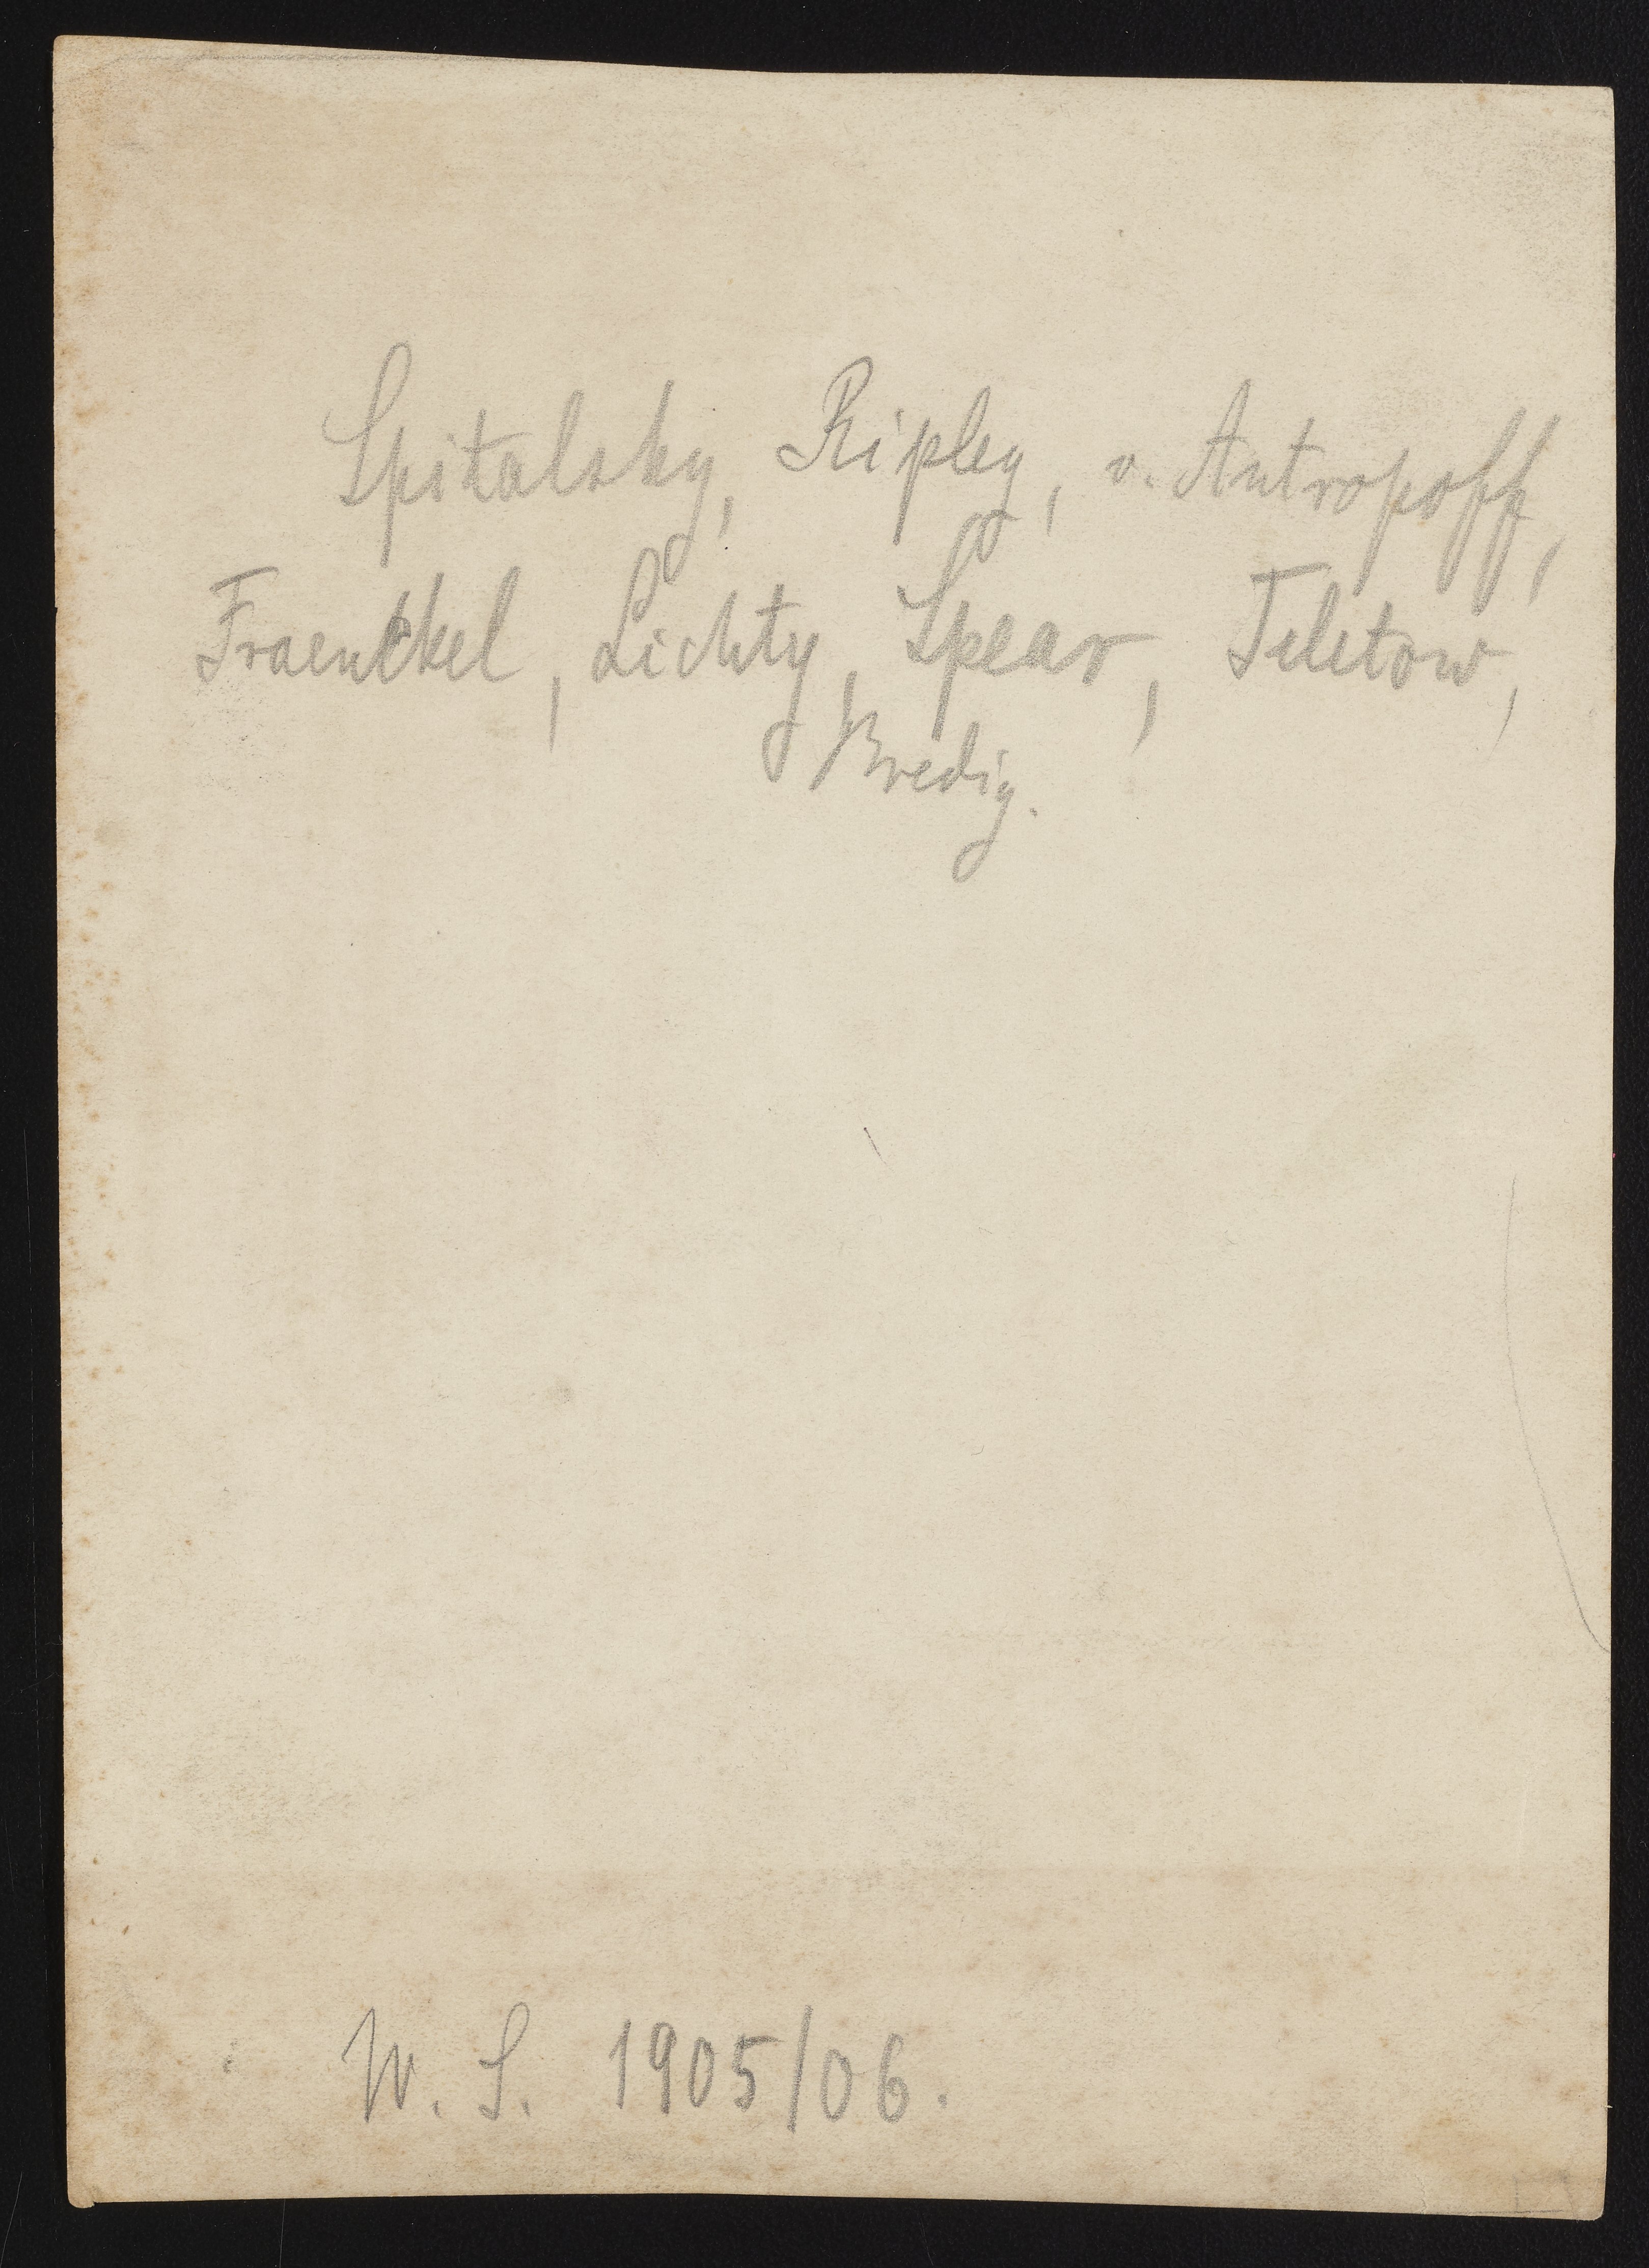 Spitalsky, Ripley, v. Antropoff,
Fraenckel, Lichty, Spear, Teletow,
Bredig.
W. S. 1905/06.